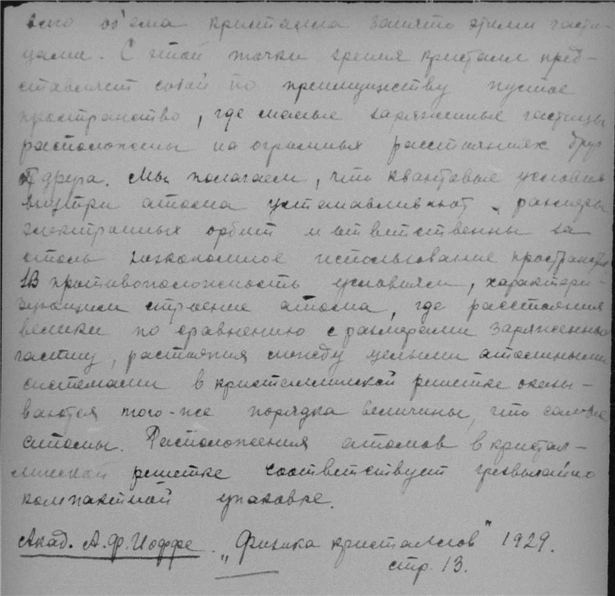 всего об'ема кристалла занято этими части-
цами. С этой точки зрения кристалл пред-
ставляет собой по преимуществу пустое
пространство, где малые заряженные частицы
расположены на огромных расстояниях друг
от друга. Мы полагаем, что квантовые условия
внутри атома устанавливают размеры
электронных орбит и ответственны за
столь неэкономное использование пространства
В противоположность условиям, характери-
зующим строение атома, где расстояния
велики по сравнению с размерами заряженных
частиц, растояния между целыми атомными
системами в кристаллической решетке оказы-
ваются того-же порядка величины, что самые
атомы. Расположения атомов в кристал-
лической решетке соответствует чрезвычайно
компактной упаковке.
Акад. А.Ф. Иоффе. „Физика кристаллов" 1929.
стр. 13.